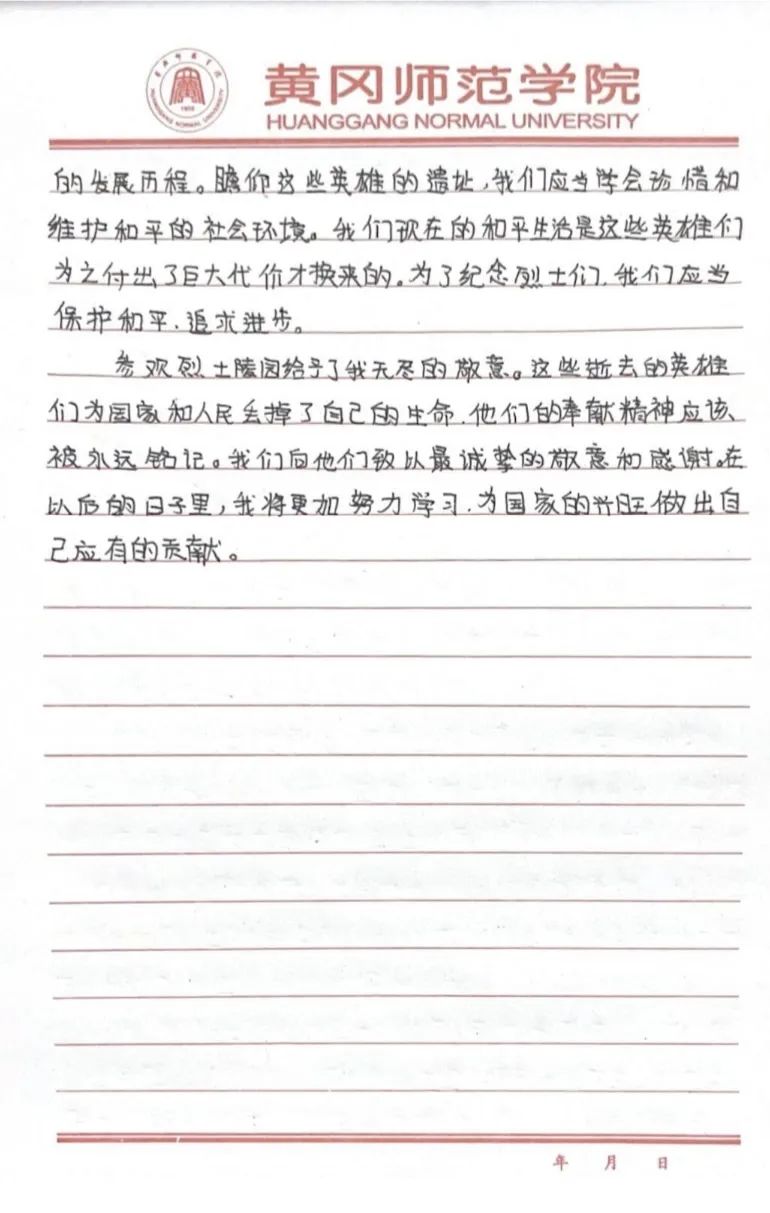 黄冈师范学院
HUANGGANG NORMAL UNIVERSITY
的发展历程。瞻仰这些英雄的遗址，我们应当学会珍惜和
维护和平的社会环境。我们现在的和平生活是这些英雄们
为之付出了巨大代价才换来的。为了纪念烈士们，我们应当
保护和平，追求进步。
参观烈士陵园给予了我无尽的敬意。这些逝去的英雄
们为国家和人民丢掉了自己的生命，他们的奉献精神应该
被永远铭记。我们向他们致以最诚挚的敬意和感谢。在
以后的日子里，我将更加努力学习，为国家的兴旺做出自
己应有的贡献。
年 月 日